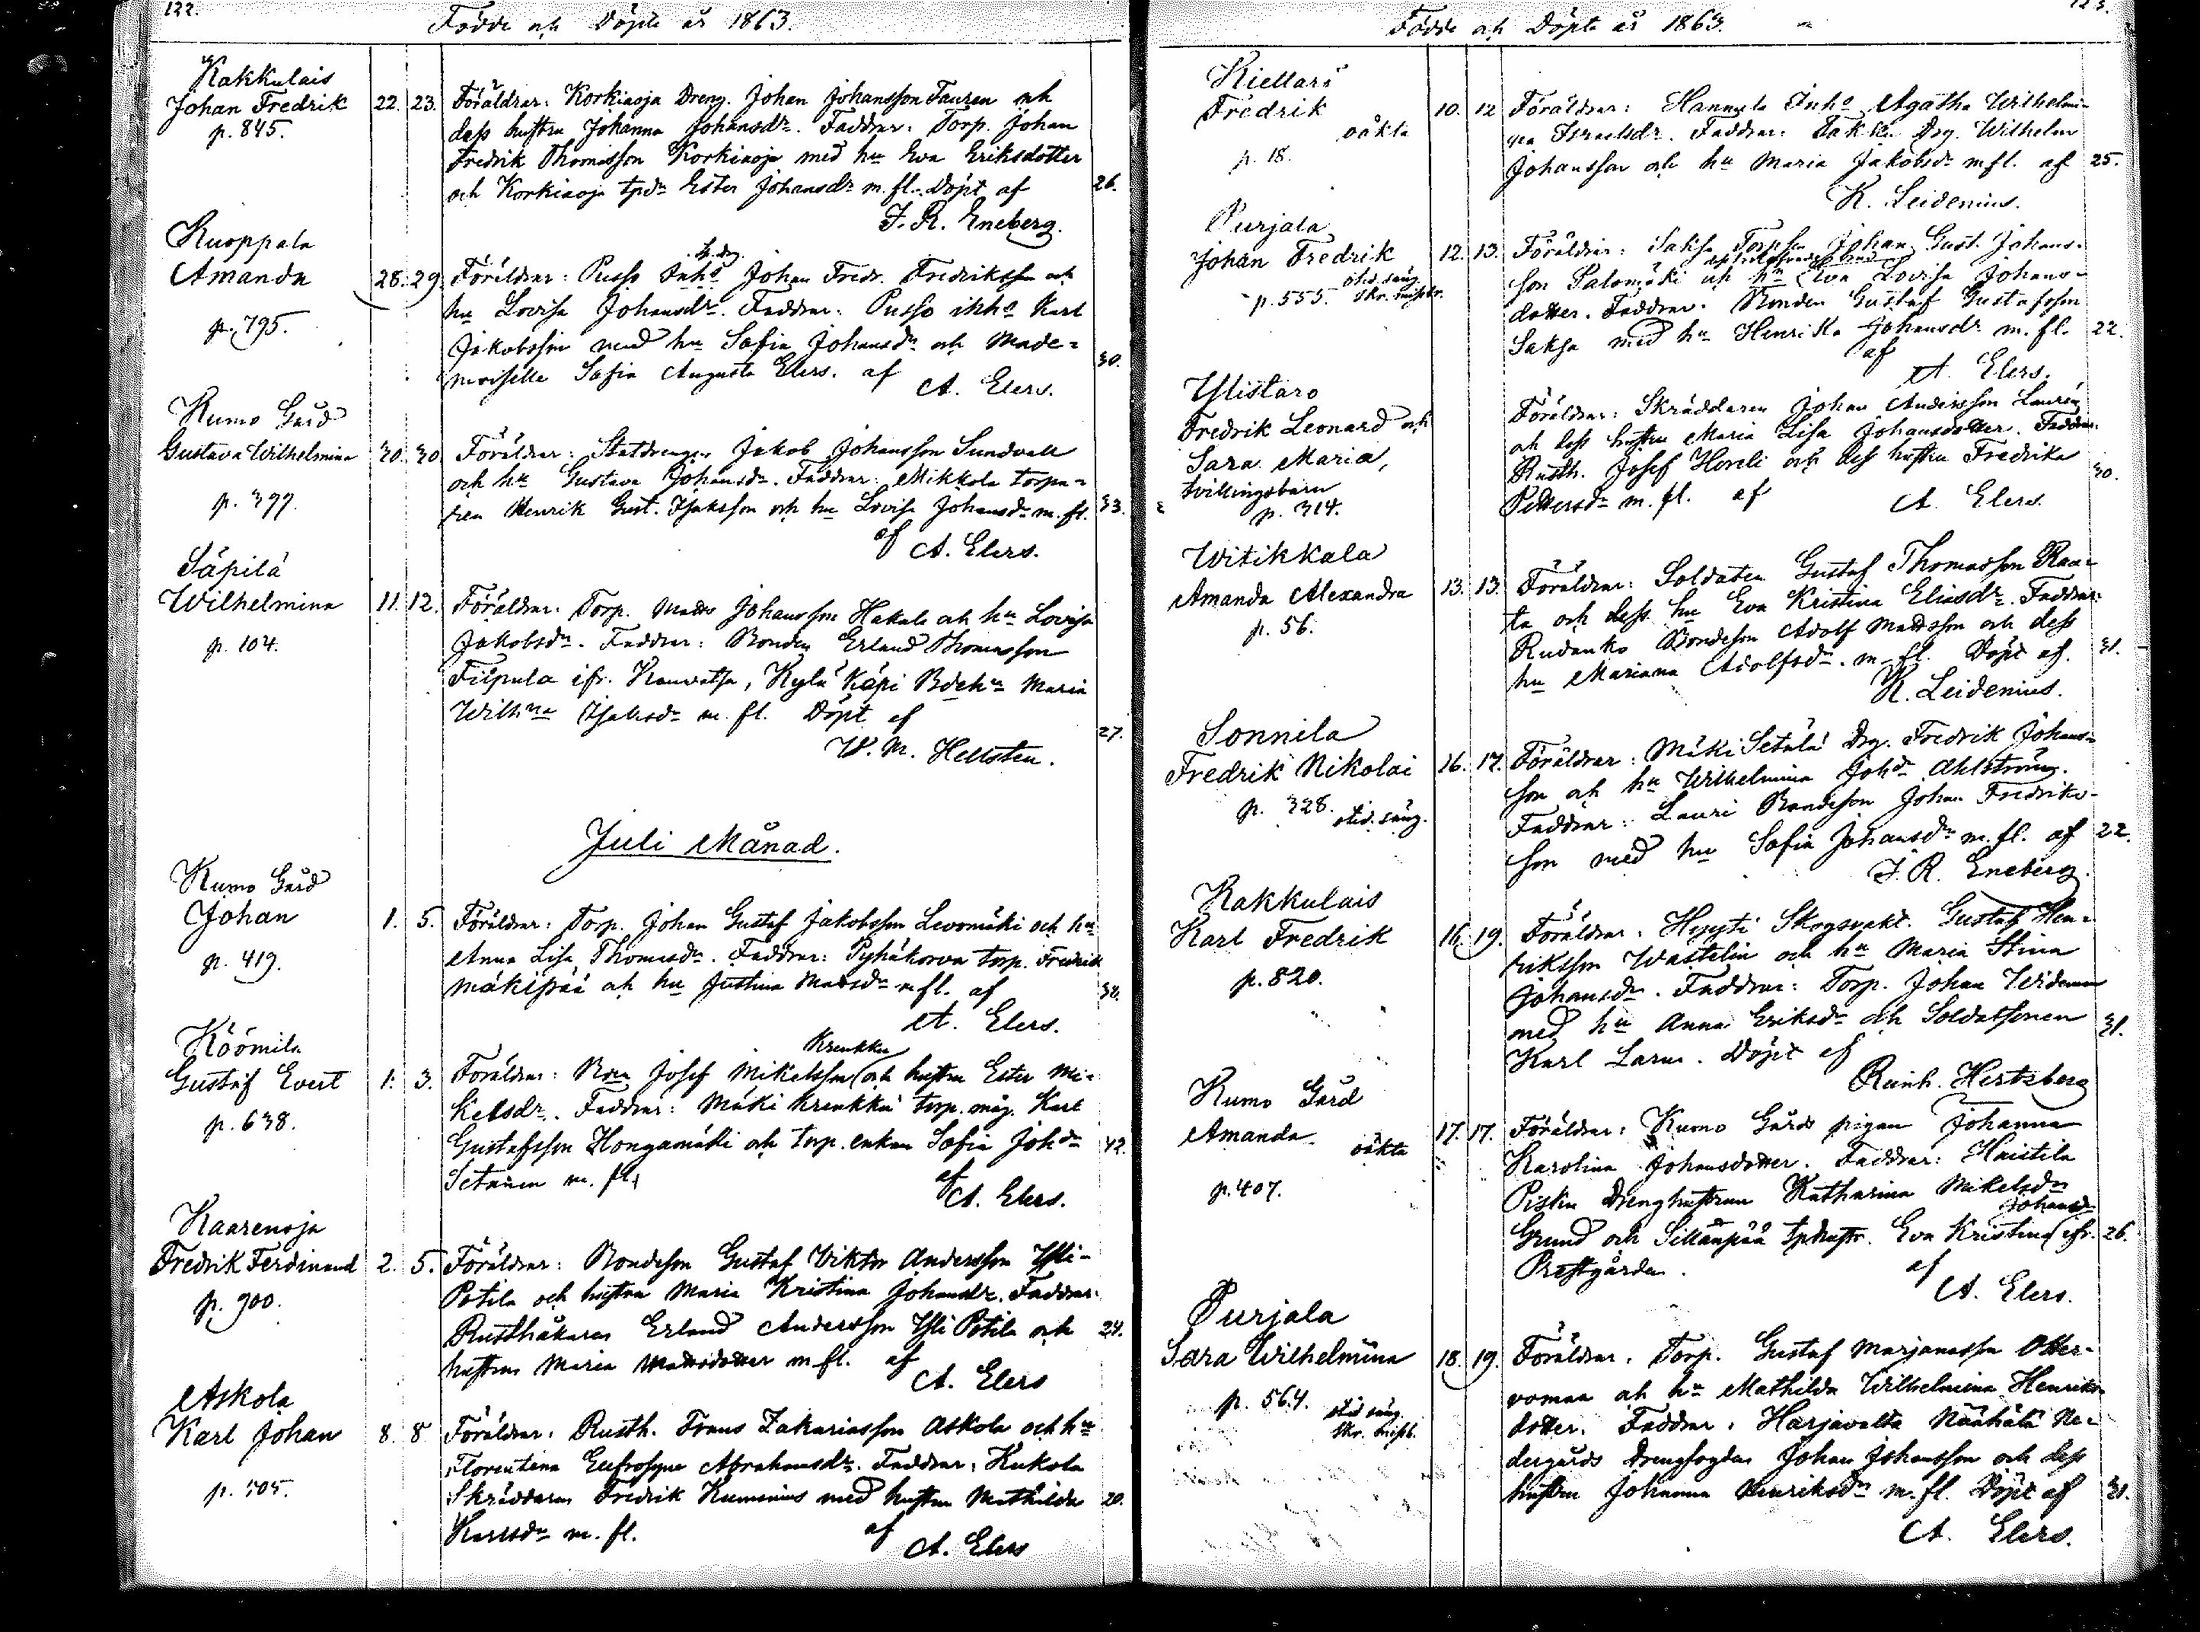 122.
Födde och Döpte år 1863.
Kakkulais
Johan Fredrik 22. 23. Föräldrar: Korkiaoja Dreng. Johan Johansson Tauren och
p. 845. dess hustru Johanna Johansdr. Faddrar: Torp. Johan
Fredrik Thomasson Korkiaoja med hu Eva Eriksdotter
och Korkiaoja tpdr Ester Johansdr m. fl. Döpt af 26.
F. R. Eneberg.
Kuoppala
Amanda 28. 29. Föräldrar: Pusso Inhs Johan Fredr. Fredriksson och
hu Lovisa Johansdr. Faddrar: Pusso Karl
p. 795.
Jakobsson med hu Sofia Johansdr och Made-
moiselle Sofia Augusta Elers. af 30.
A. Elers.
Kumo Gård
Gustava Wilhelmina 30. 30. Föräldrar: Statdrengen Jakob Johansson Sundvall
och hu Gustava Johansdr. Faddrar: Mikkola torpa-
p. 399.
ren Henrik Gust. Isaksson och hu Lovisa Johansdr m. fl. 33.
af A. Elers.
Säpilä
Wilhelmina 11. 12. Föräldrar: Torp. Matts Johansson Hakala och hu Lovisa
p. 104. Jakobsdr. Faddrar: Bonden Erland Thomasson
Filpula ifr. Kauvatsa, Kylä Käpi Maria
Wilhna Isaksdr m. fl. Döpt af 27.
W. M. Hellsten.
Juli Månad.
Kumo Gård
Johan 1. 5. Föräldrar: Torp. Johan Gustaf Jakobsson Levomäki och hu
Anna Lisa Thomasdr. Faddrar: Pyhäkorva torp. Fredrik
p. 419.
Mäkipää och hu Justina Matsdr m fl. af 38.
A. Elers.
Köömilä
Krenkku
Gustaf Evert 1. 3. Föräldrar: Josef Mikelsson och hustru Ester Mi-
p. 638. kelsdr. Faddrar: Mäki Krenkku torp. måg. Karl
Gustafsson Hongamäki och torp. enkan Sofia Johdr 42.
m. fl.
af A. Elers.
Kaarenoja
Fredrik Ferdinand 2. 5. Föräldrar: Bondeson Gustaf Viktor Andersson Yli-
p. 900. Potila och hustru Maria Kristina Johansdr. Faddrar:
Rusthållaren Erland Andersson Yli Potila och 24.
hustru Maria Mattsdotter m fl. af
A. Elers
Askola
Karl Johan 8. 8 Föräldrar: Rusth. Frans Zakariasson Askola och hu
Florentina Eufrosyne Abrahamsdr. Faddrar: Kukola
p. 505.
Skräddaren Fredrik Kumenius med hustru Mathilda 20.
Karlsdr m. fl. af
A. Elers
Födde och Döpte år 1863.
Kiettari
Fredrik 10. 12 Föräldrar: Hannula Inhs Agatha Wilhelmi-
oäkta
na Israelsdr. Faddrar: Drg. Wilhelm
p. 18.
Johansson och hu Maria Jakobsdr m fl. af 25.
K. Leidenius.
Purjala
Johan Fredrik 12. 13. Föräldrar: Saksa Torpson Johan Gust. Johans-
p. 555. son Salomäki och hu Eva Lovisa Johans-
dotter. Faddrar: Bonden Gustaf Gustafsson
Saksa med hu Henrika Johansdr m. fl. 22.
af
A. Elers.
Ylistaro
Fredrik Leonard och Föräldrar: Skräddaren Johan Andersson Laurén
Sara Maria, och dess hustru Maria Lisa Johansdotter. Faddrar:
tvillingsbarn Rusth. Josef Horeli och dess hustru Fredrika 30.
p. 314. Pettersdr m. fl. af A. Elers.
Witikkala
Amanda Alexandra 13. 13. Föräldrar: Soldaten Gustaf Thomasson Raa-
p. 56. ta och dess hu Eva Kristina Eliasdr. Faddrar:
Rudanko Bondeson Adolf Mattsson och dess
hu Mariana Adolfsdr. m fl. Döpt af. 31.
K. Leidenius.
Sonnila
Fredrik Nikolai 16. 17. Föräldrar: Mäki Setälä Drg. Fredrik Johans-
p. 328. son och hu Wilhelmina Johdr Ahlström.
Faddrar: Lauri Bondeson Johan Fredriks-
son med hu Sofia Johansdr m. fl. af 22.
F. R. Eneberg.
Kakkulais
Karl Fredrik 16. 19. Föräldrar: Hyyti Skogsvakt. Gustaf Hen-
p. 820. riksson Wastelin och hu Maria Stina
Johansdr. Faddrar: Torp. Johan Widenman
med hu Anna Eriksdr och Soldatsonen 31.
Karl Larm. Döpt af
Reinh. Hertzberg
Kumo Gård
Amanda 17. 17. Föräldrar: Kumo Gårds pigan Johanna
oäkta
Karolina Johansdotter. Faddrar: Haistila
p. 407. Pisku Drenghustrun Katharina Mikelsdr
Johansdr
Grund och Sillanpää tphustr. Eva Kristina ifr. 26.
Prestgården. af
A. Elers.
Purjala
Sara Wilhelmina 18. 19. Föräldrar: Torp. Gustaf Marjanasson Otter-
p. 564. vomaa och hu Mathilda Wilhelmina Henriks-
dotter. Faddrar: Harjavalta Näyhälä Ne-
dergårds Drengfogden Johan Johansson och dess
hustru Johanna Henriksdr m. fl. Döpt af 31.
A. Elers.